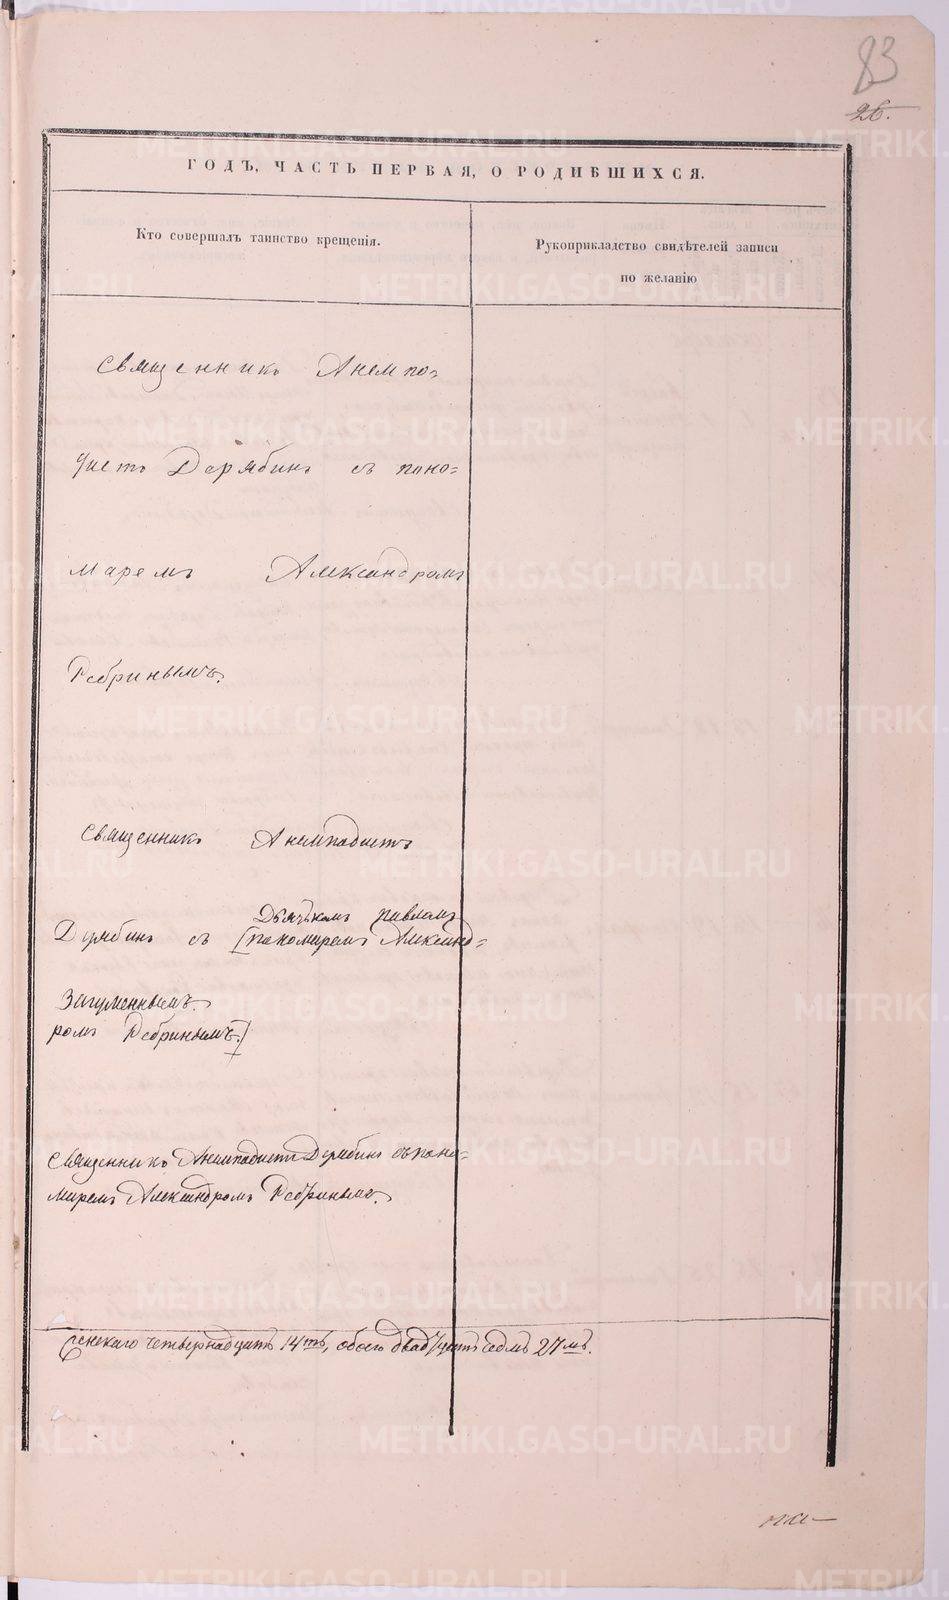 83
26.
ГОДЪ, ЧАСТЬ ПЕРВАЯ, О РОДИВШИХСЯ.
Кто совершалъ таинство крещенія.
Рукоприкладство свидѣтелей записи
по желанію
Священникъ Анемпо-
дистъ Дерябинъ съ поно-
маремъ Александромъ
Ребринымъ.
Священникъ Анемподистъ
Дьячкомъ Павломъ
Дерябинъ съ [пономаремъ Александ-
Загуменнымъ.
ромъ Ребринымъ.]
Священникъ Анемподистъ Дерябинъ съ поно-
маремъ Александромъ Ребринымъ.
Женскаго четвернадцать 14ть, обоего двадцать седмь 27мь.
METRIKI.GASO-URAL.RU